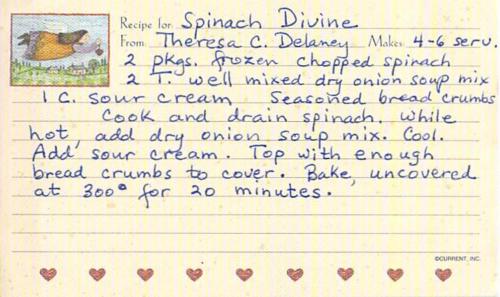 Recipe for Spinach Divine
From Theresa C. Delaney Makes 4-6 serv.
2 pkgs. frozen chopped spinach
2 T. well mixed dry onion soup mix
1 C. sour cream Seasoned bread crumbs
Cook and drain spinach. While
hot, add dry onion soup mix. Cool.
Add sour cream. Top with enough
bread crumbs to cover. Bake, uncovered
at 300° for 20 minutes.
©CURRENT, INC.